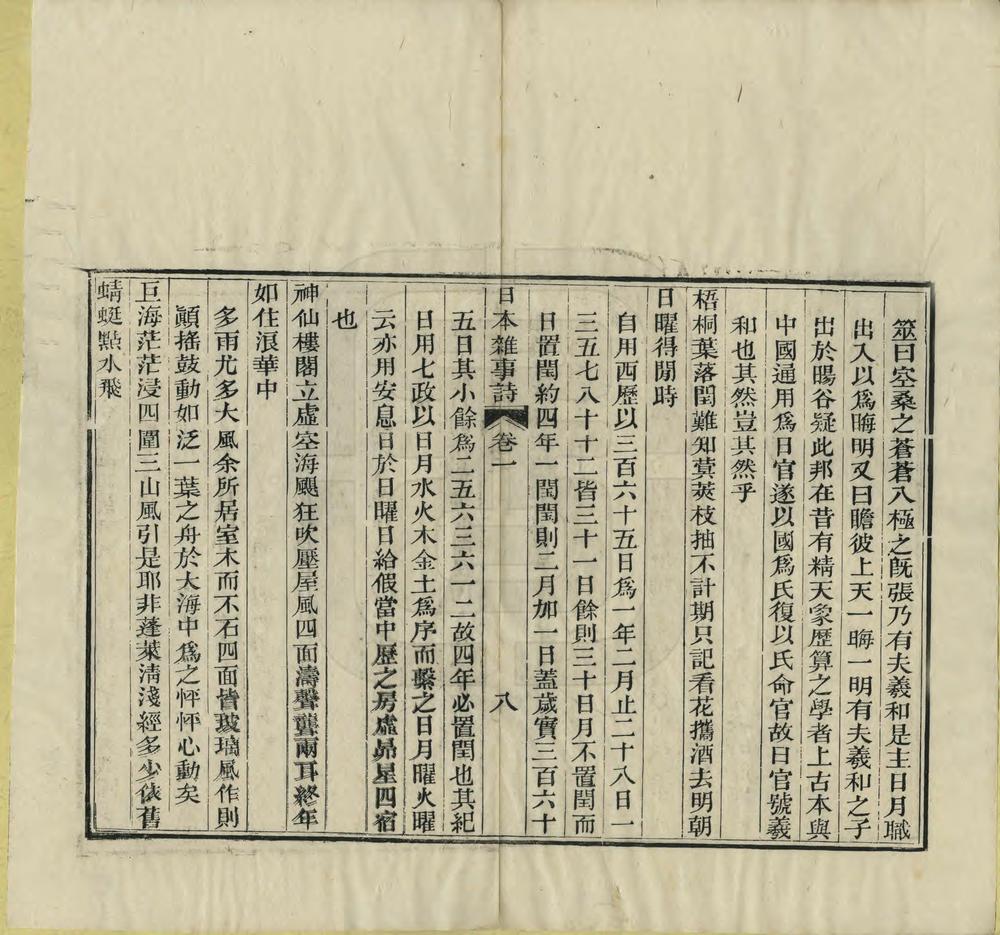 筮曰空桑之蒼蒼八極之既張乃有夫羲和是主日月職
出入以爲晦明又曰瞻彼上天一晦一明有夫羲和之子
出於暘谷疑此邦在昔有精天象歷算之學者上古本與
中國通用爲日官遂以國爲氏復以氏命官故日官號羲
和也其然豈其然乎
梧桐葉落閏難知蓂莢枝抽不計期只記看花攜酒去明朝
日曜得閒時
自用西歷以三百六十五日爲一年二月止二十八日一
三五七八十十二皆三十一日餘則三十日月不置閏而
日置閏約四年一閏閏則二月加一日蓋歲實三百六十
日本雜事詩 卷一 八
五日其小餘爲二五六三六一二故四年必置閏也其紀
日用七政以日月水火木金土爲序而繫之日月曜火曜
云亦用安息日於日曜日給假當中歷之房虛昴星四宿
也
神仙樓閣立虛空海颶狂吹壓屋風四面濤聲聾兩耳終年
如住浪華中
多雨尤多大風余所居室木而不石四面皆玻璃風作則
顚搖鼓動如泛一葉之舟於大海中爲之怦怦心動矣
巨海茫茫浸四圍三山風引是耶非蓬萊淸淺經多少依舊
蜻蜓點水飛